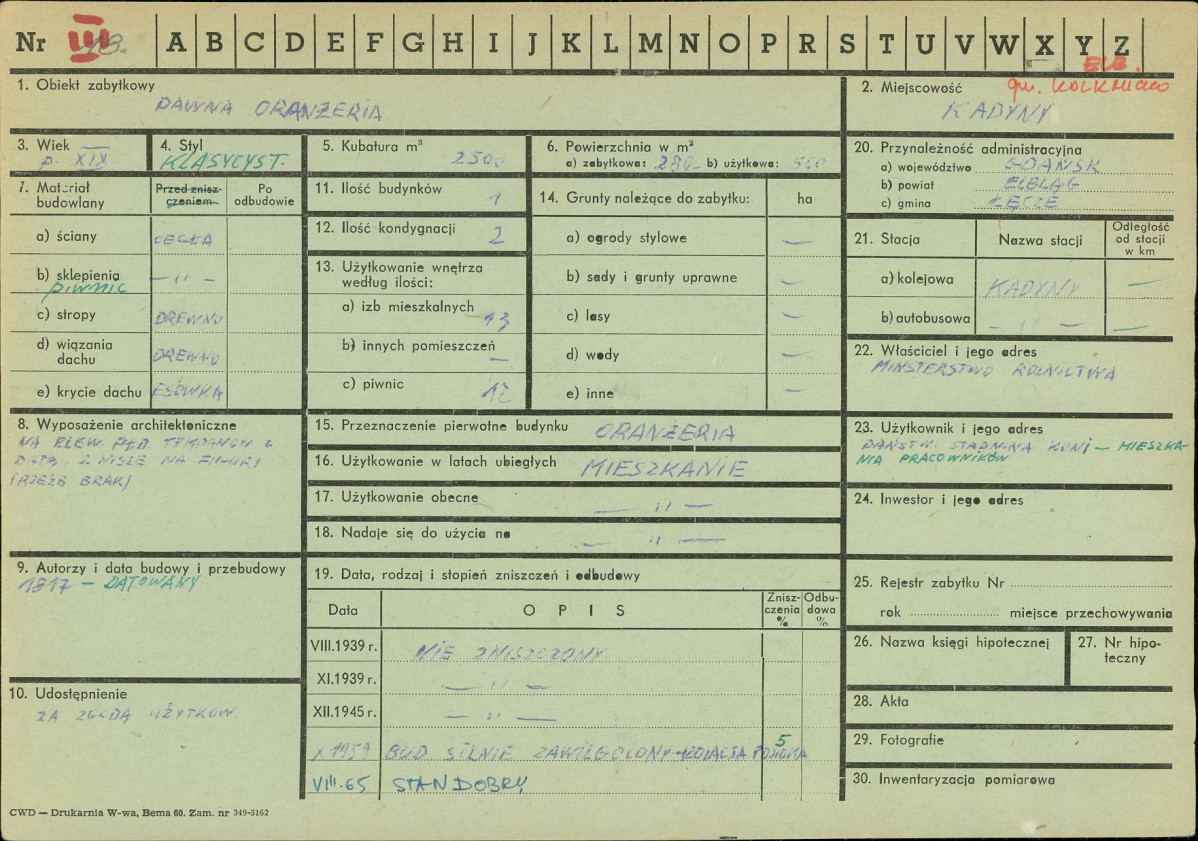 Nr III 13. A B C D E F G H I J K L M N O P R S T U V W X Y Z
gm. TOLKMICKO
1. Obiekt zabytkowy
DAWNA ORANŻERIA
2. Miejscowość
KADYNY
3. Wiek
p. XIX
4. Styl
KLASYCYST.
5. Kubatura m³
2500
6. Powierzchnia w m²
a) zabytkowa: 280 b) użytkowa: 500
20. Przynależność administracyjna
a) województwo GDAŃSK
b) powiat ELBLĄG
c) gmina ŁĘCZE
7. Materiał budowlany
Przed zniszczeniem
Po odbudowie
a) ściany CEGŁA
b) sklepienia — „ —
piwnic
c) stropy DREWNO
d) wiązania dachu DREWNO
e) krycie dachu ESÓWKA
11. Ilość budynków 1
12. Ilość kondygnacji 2
13. Użytkowanie wnętrza według ilości:
a) izb mieszkalnych 13
b) innych pomieszczeń —
c) piwnic 12
14. Grunty należące do zabytku: ha
a) ogrody stylowe —
b) sady i grunty uprawne —
c) lasy —
d) wody —
e) inne —
21. Stacja
Nazwa stacji
Odległość od stacji w km
a) kolejowa KADYNY —
b) autobusowa — „ — —
22. Właściciel i jego adres
MINSTERSTWO ROLNICTWA
8. Wyposażenie architektoniczne
NA ELEW. PŁD TYMPANON Z
DATĄ, 2 NISZE NA FIGURY
(RZEŹB BRAK)
15. Przeznaczenie pierwotne budynku ORANŻERIA
16. Użytkowanie w latach ubiegłych MIESZKANIE
17. Użytkowanie obecne — „ —
18. Nadaje się do użycia na — „ —
23. Użytkownik i jego adres
PAŃSTW. STADNINA KONI — MIESZKA-
NIA PRACOWNIKÓW
24. Inwestor i jego adres
9. Autorzy i data budowy i przebudowy
1817 — DATOWANY
10. Udostępnienie
ZA ZGODĄ UŻYTKOW.
19. Data, rodzaj i stopień zniszczeń i odbudowy
Data
OPIS
Zniszczenia %
Odbudowa %
VIII.1939 r. NIE ZNISZCZONY
XI.1939 r. — „ —
XII.1945 r. — „ —
X 1959 BUD SILNIE ZAWILGOCONY 5
VIII.65 STAN DOBRY
25. Rejestr zabytku Nr
rok miejsce przechowywania
26. Nazwa księgi hipotecznej
27. Nr hipoteczny
28. Akta
29. Fotografie
30. Inwentaryzacja pomiarowa
CWD — Drukarnia W-wa, Bema 60. Zam. nr 349-5162